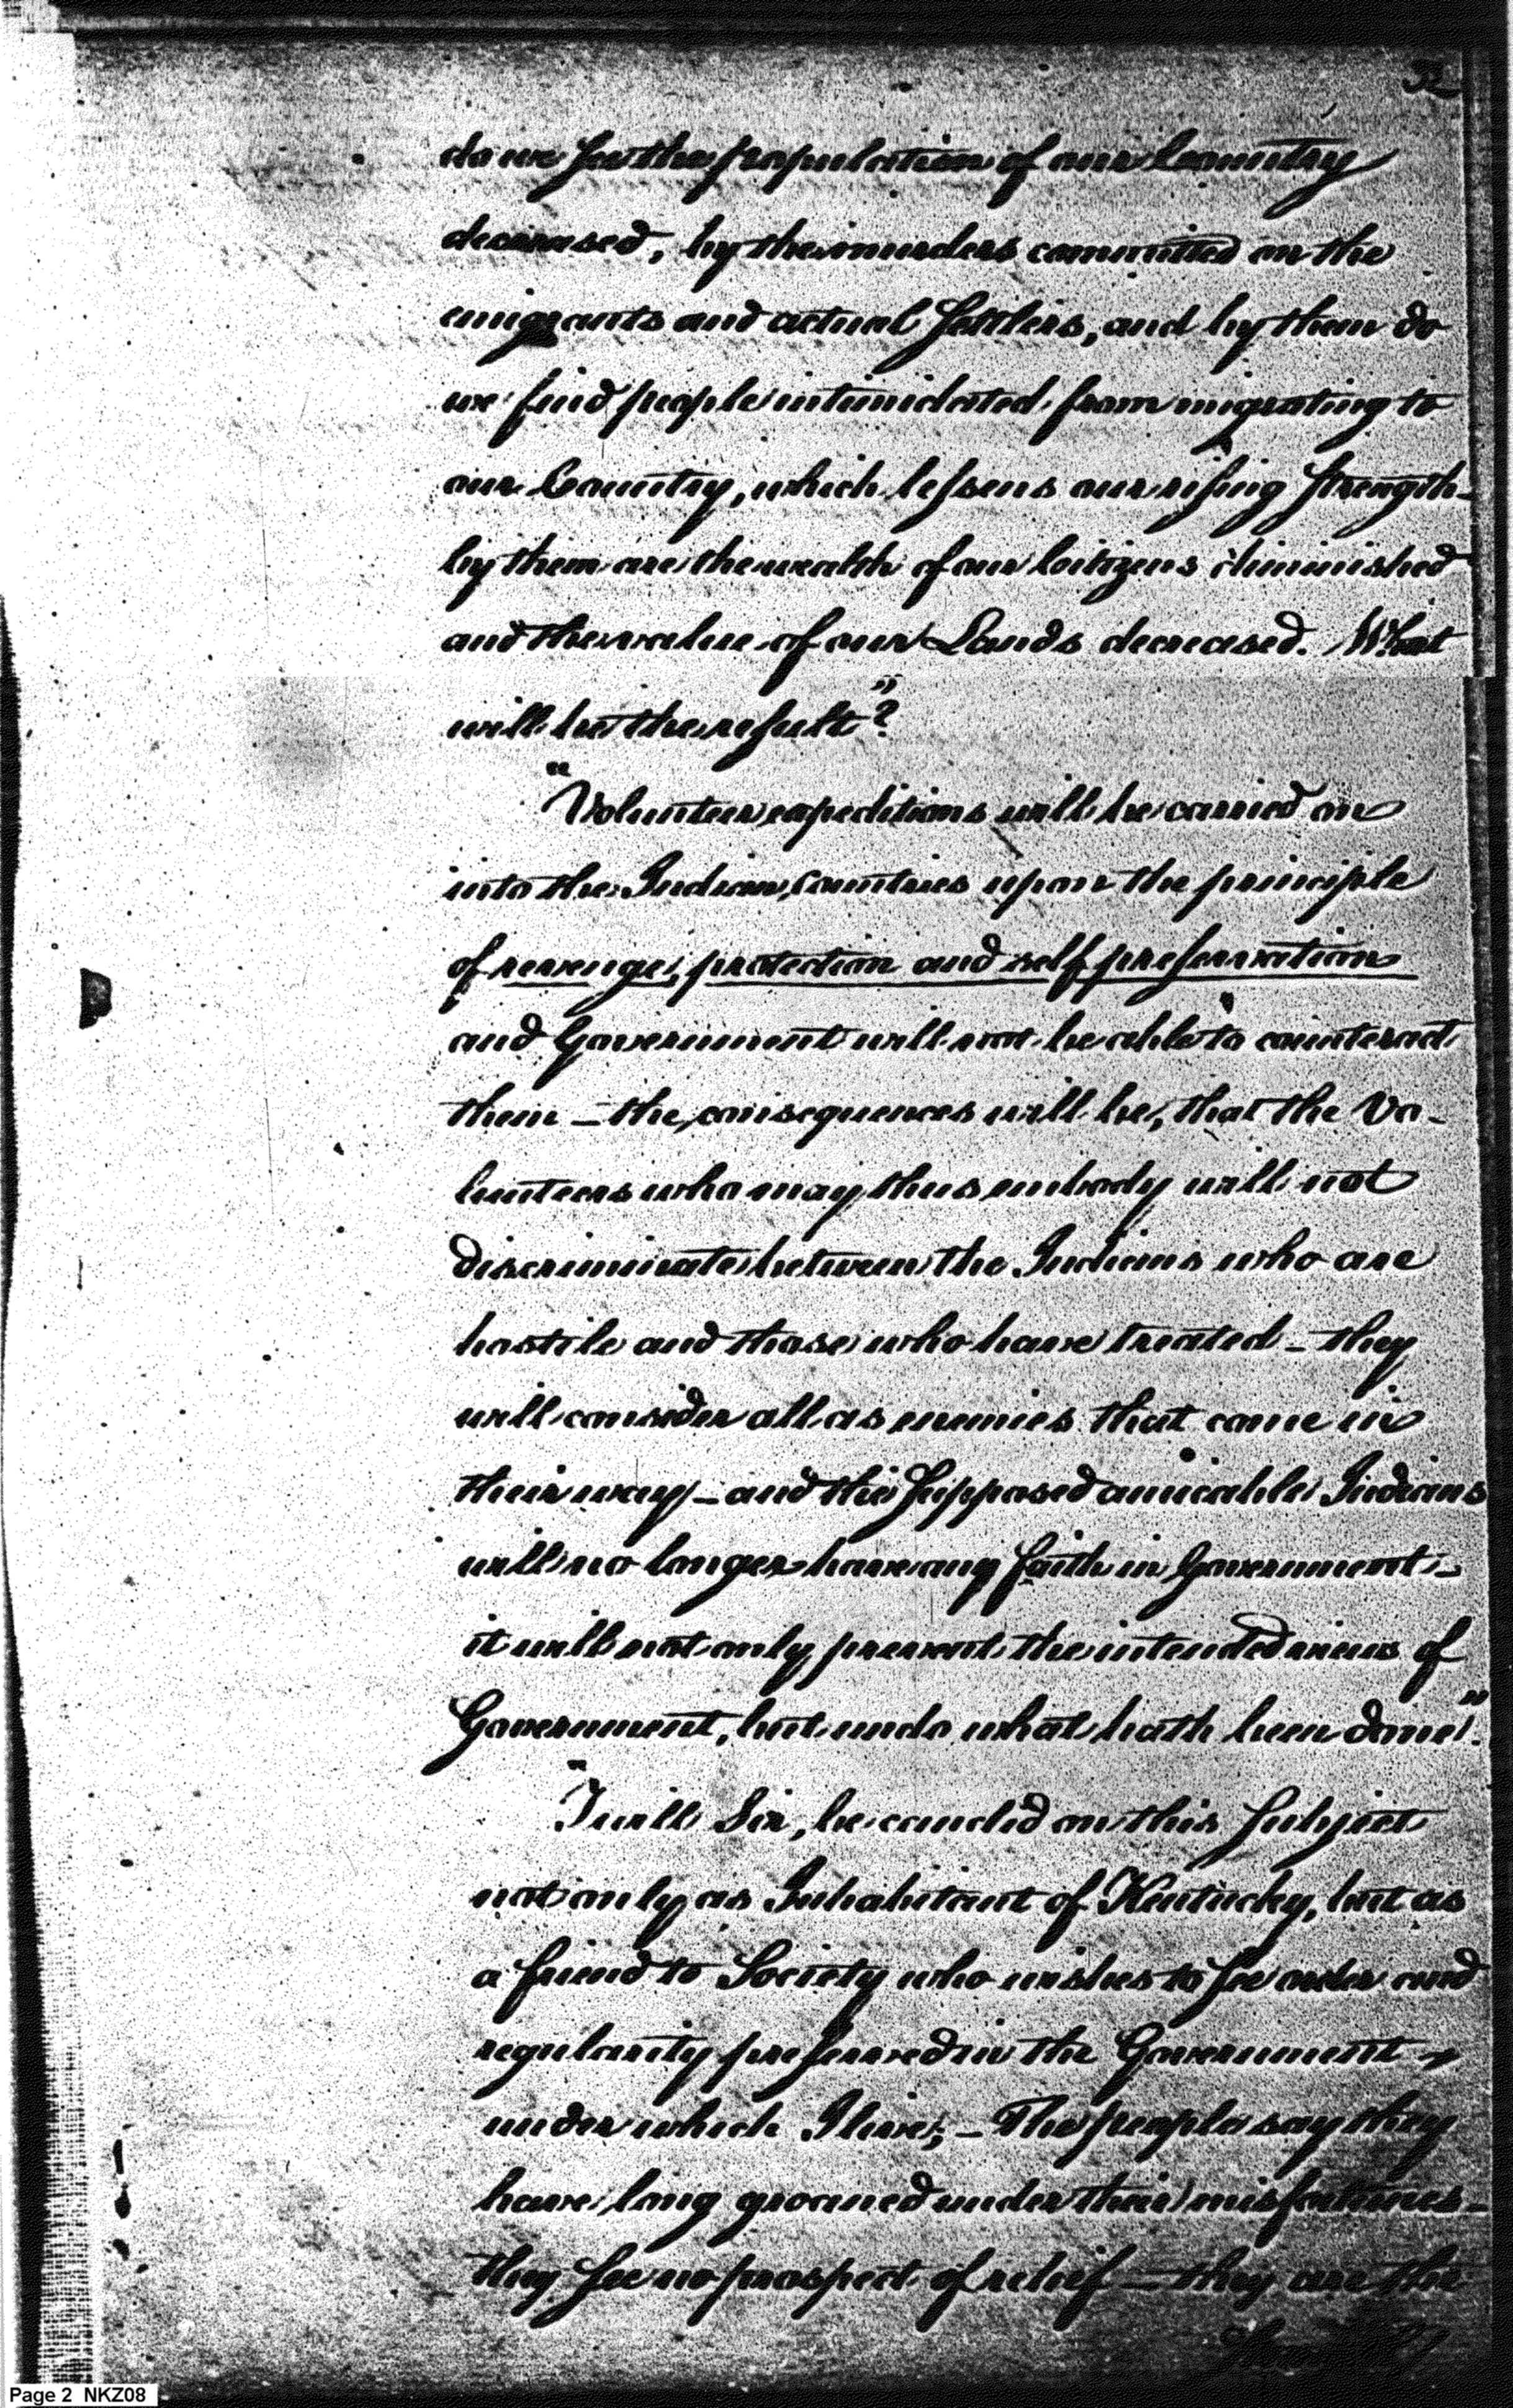 32
do we see the population of our Country
decreased, by the murders committed on the
emigrants and actual Settlers, and by them do
we find people intimidated from migrating to
our Country, which lessens our rising Strength_
by them are the wealth of our Citizens diminished
and the value of our Lands decreased. What
will be the result"?
"Volunteer expeditions will be carried on
into the Indian, Countries upon the principle
of revenge, protection and self preservation
and Government will not be able to counteract
them _ the consequences will be, that the Vo-
lunteers who may thus embody will not
discriminate between the Indians who are
hostile and those who have treated _ they
will consider all as enemies that come in
their way _ and the Supposed amicable Indians
will no longer have any faith in Government _
it will not only prevent the intended views of
Government, but undo what hath been done".
"I will Sir, be candid on this Subject
not only as Inhabitant of Kentucky, but as
a friend to Society who wishes to see order and
regularity preserved in the Government
under which I live; _ The people say they
have long groaned under their misfortunes _
they see no prospect of relief _ they are the
Page 2 NKZ08